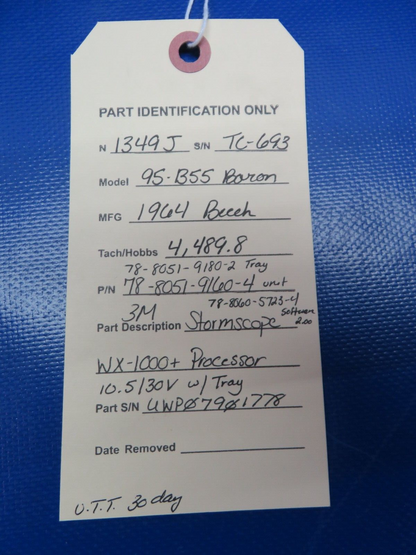 PART IDENTIFICATION ONLY
N 1349J S/N TC-693
Model 95-B55 Baron
MFG 1964 Beech
Tach/Hobbs 4,489.8
78-8051-9180-2 Tray
P/N 78-8051-9160-4 unit
78-8060-5723-4 Software 2.00
3M
Part Description Stormscope
WX-1000+ Processor
10.5/30V w/ Tray
Part S/N UWPØ79Ø1778
Date Removed
U.T.T. 30 day